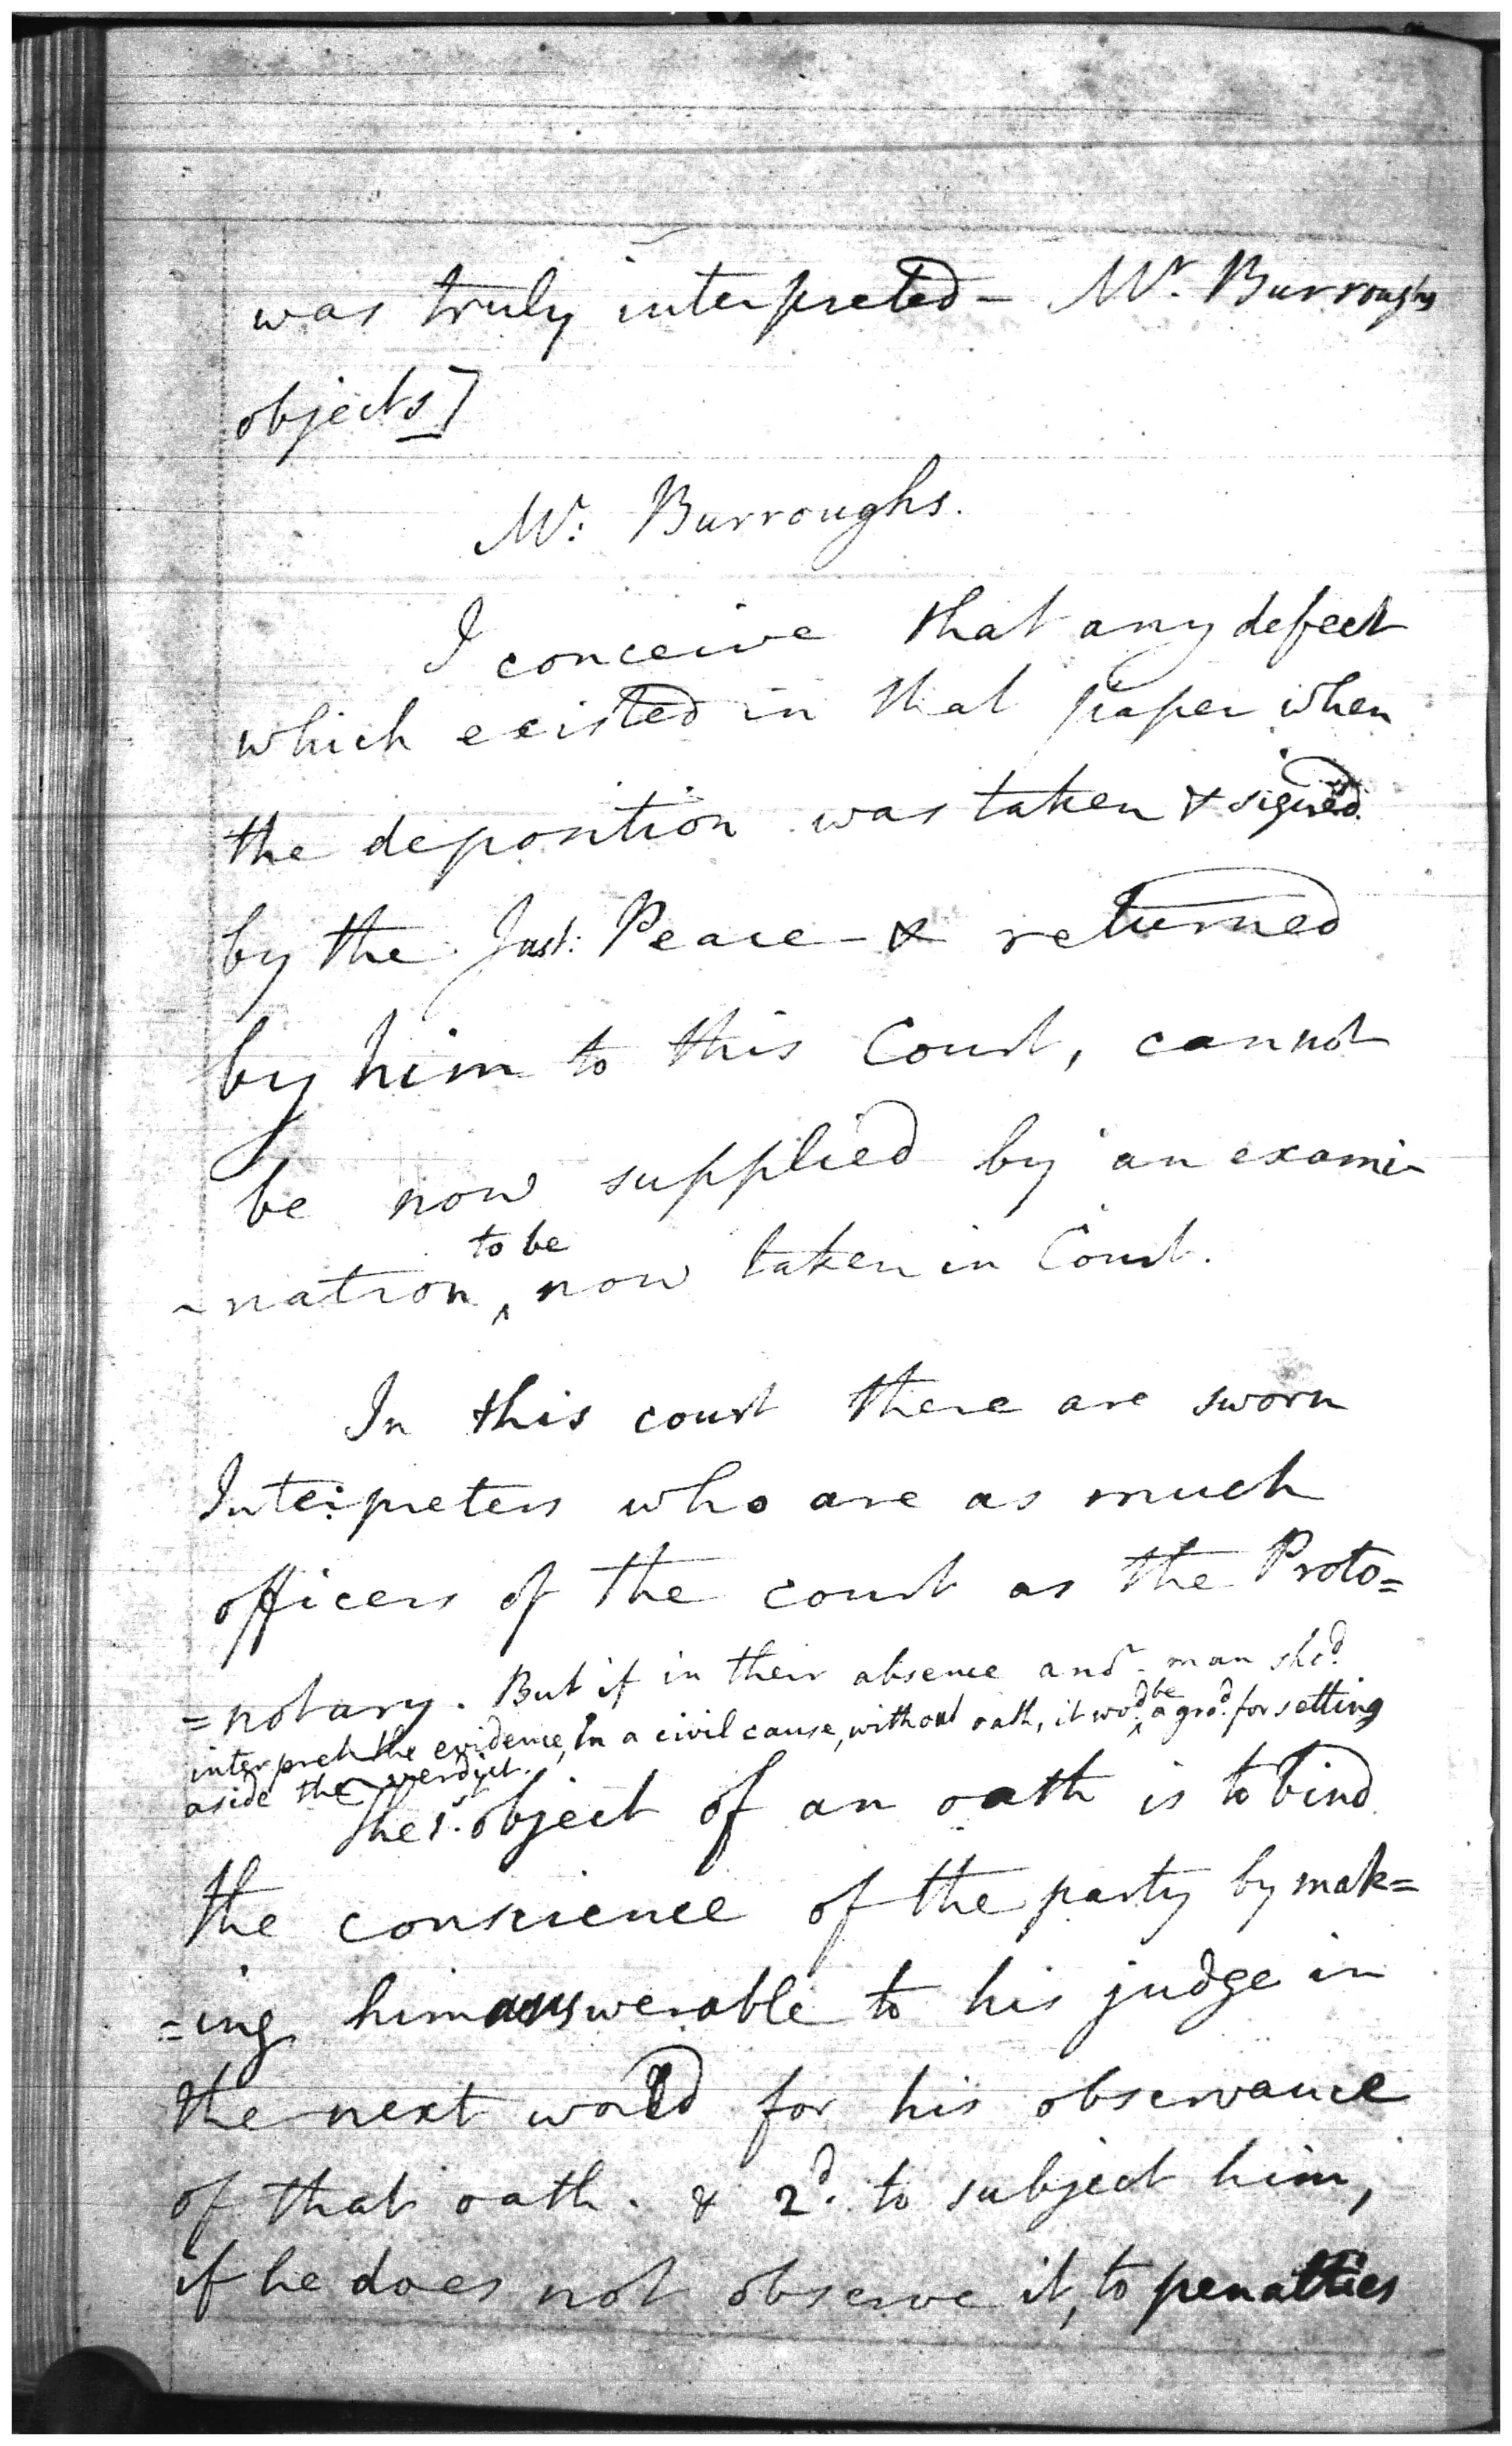 was truly interpreted – Mr. Burroughs
objects]
Mr. Burroughs.
I conceive that any defect
which existed in that paper when
the deposition was taken & signed
by the Just: Peace – & returned
by him to this Court, cannot
be now supplied by an exami-
to be
~nation ‸ now taken in Court.
In this court there are sworn
Interpreters who are as much
officers of the court as the Proto=
=notary. But if in their absence man shd.
be
interpret the evidence, in a civil cause, without oath, it wod. ‸ a grod. for setting
aside the verdict.
The 1. object of an oath is to bind
the conscience of the party by mak=
=ing him answerable to his judge in
the next world for his observance
of that oath. & 2d. to subject him,
if he does not observe it, to penalties